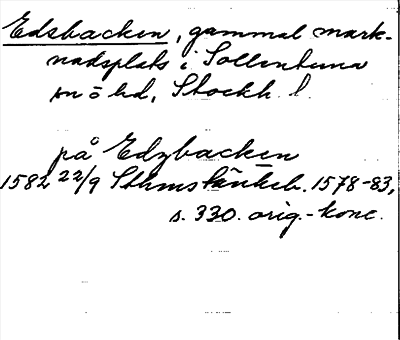 Edsbacken, gammal mark-
nadsplats i Sollentuna
sn o hd, Stockh. l.
på Edzbacken
1582 22/9 Sthms tänkeb. 1578-83,
s. 330. orig.-konc.